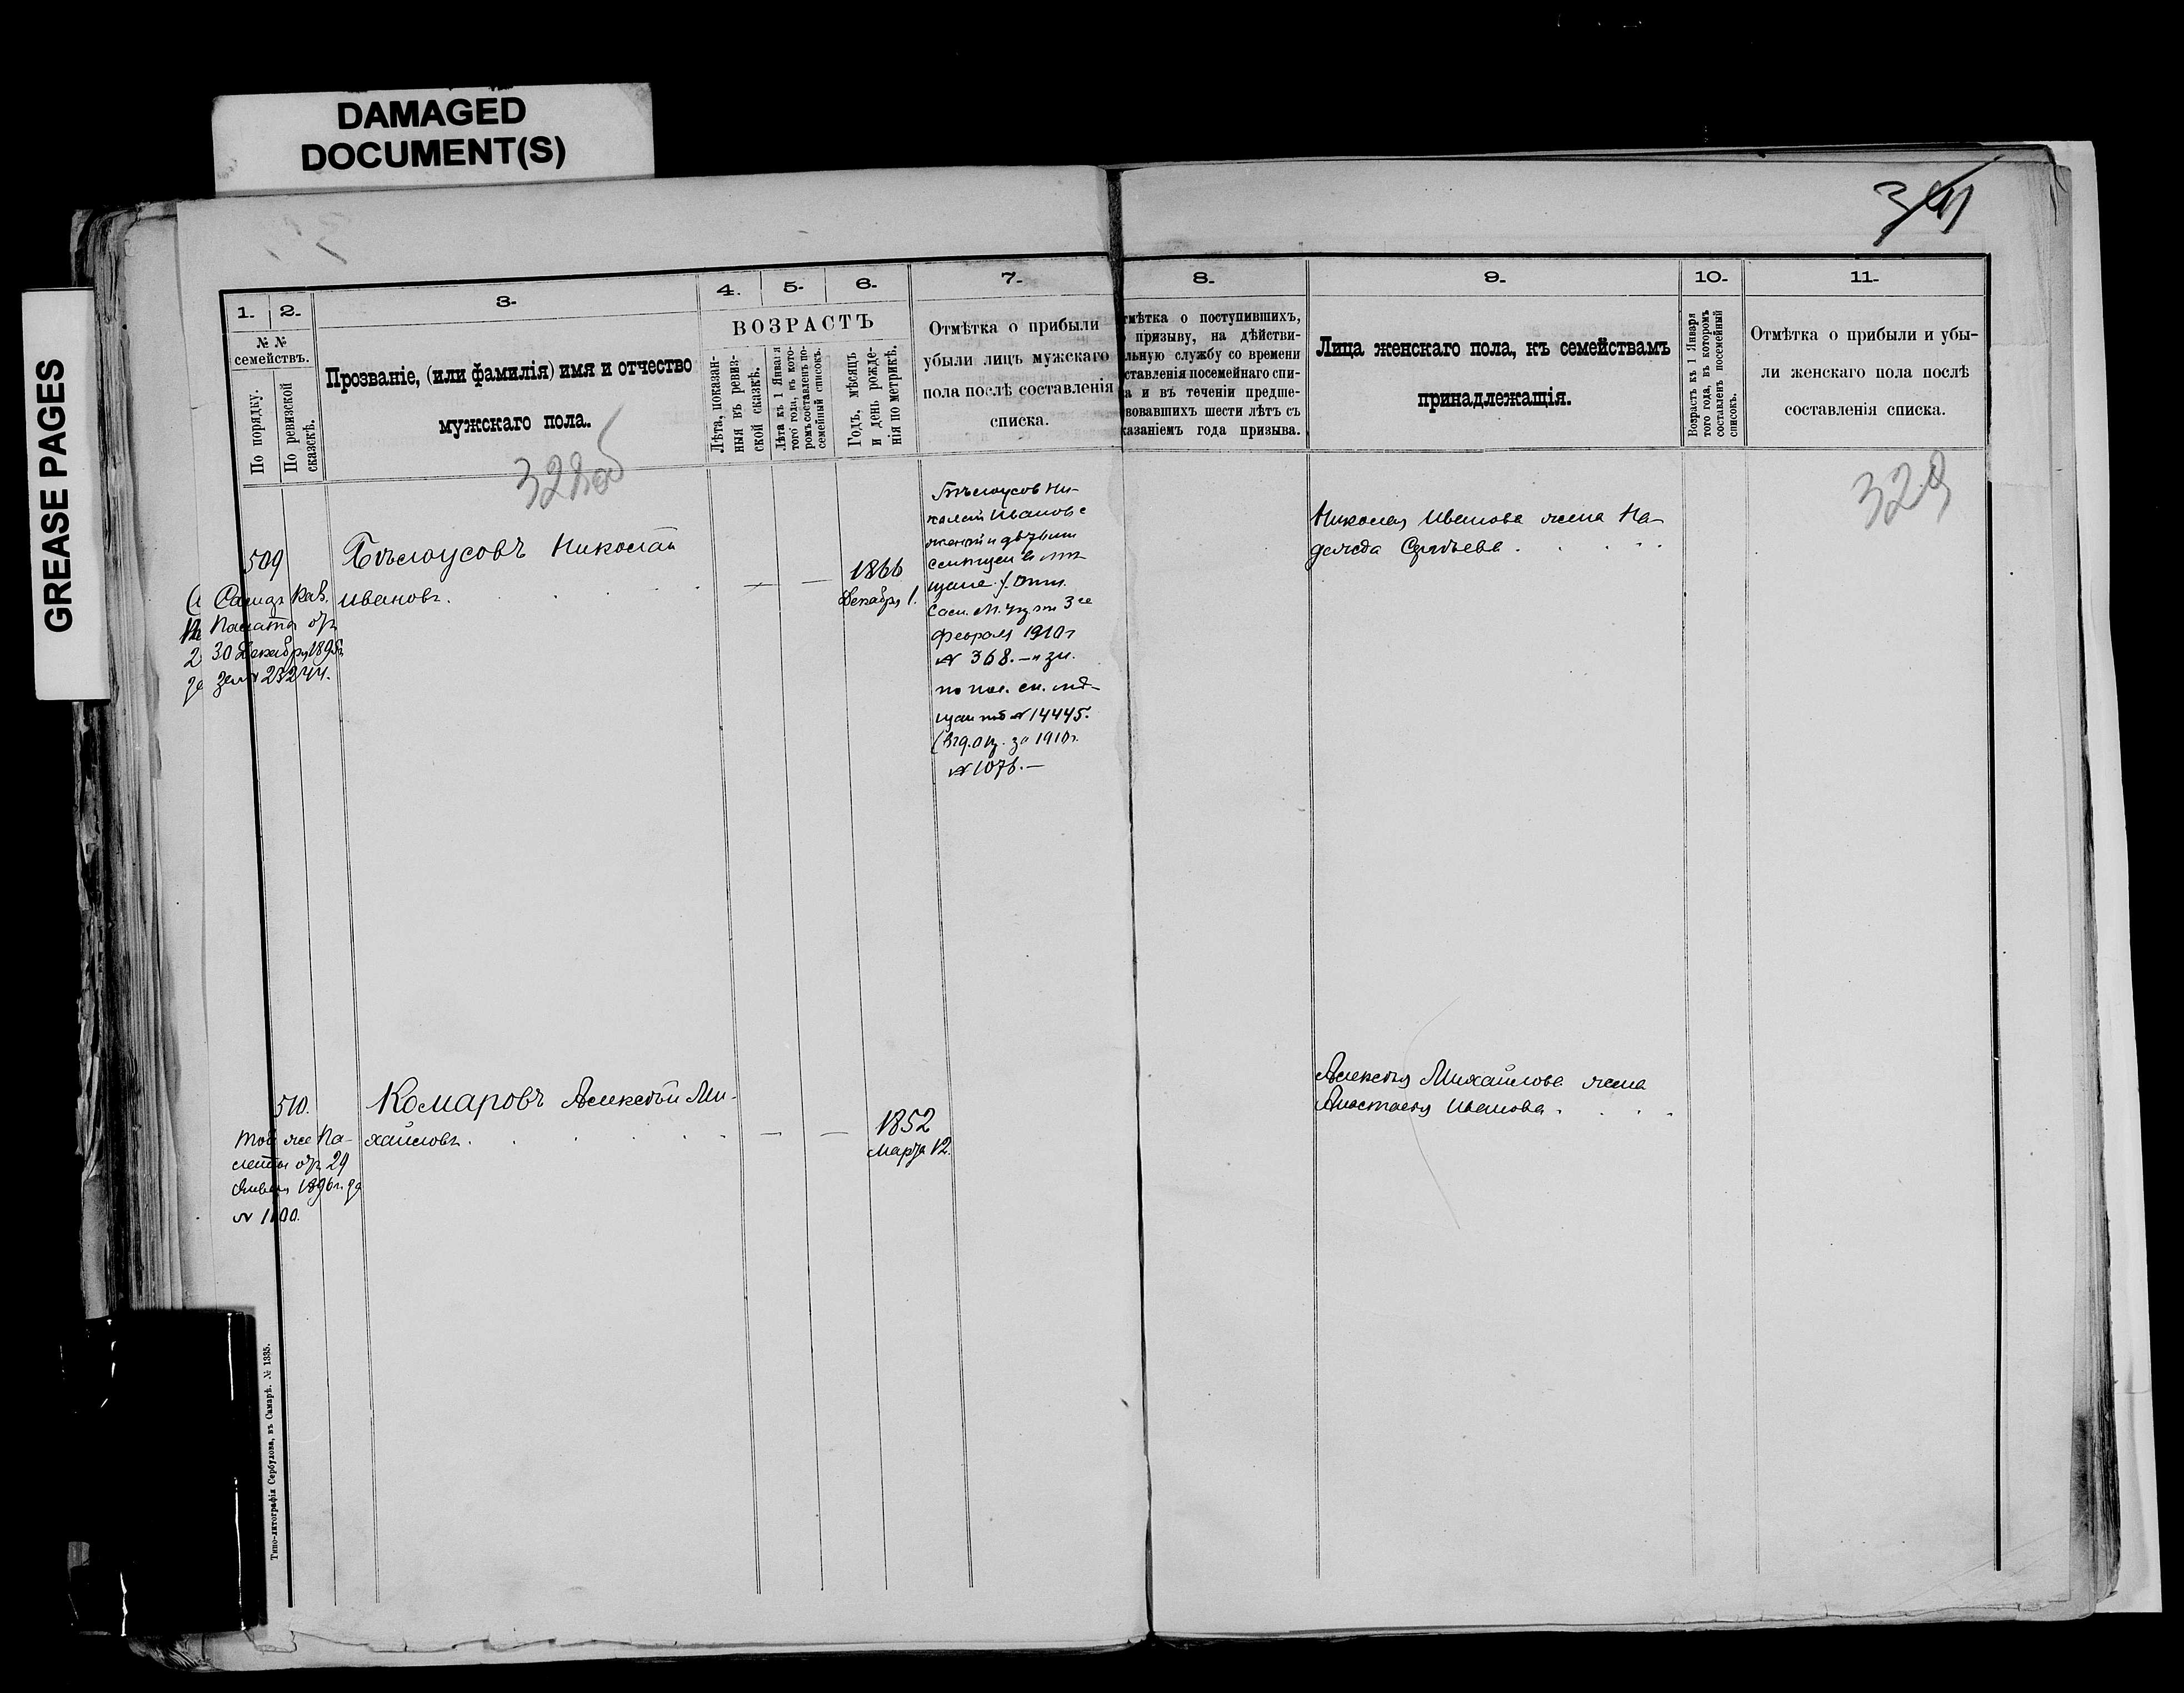 DAMAGED
DOCUMENT(S)
GREASE PAGES
1.
2.
3.
4.
5.
6.
7.
8.
9.
10.
11.
№ №
семействъ.
По порядку.
По ревизской
сказкѣ.
Прозваніе, (или фамилія) имя и отчество
мужскаго пола.
ВОЗРАСТЪ
Лѣта, показан-
ныя въ ревиз-
ской сказкѣ.
Лѣта къ 1 Января
того года, въ кото-
ромъ составленъ по-
семейный списокъ.
Годъ, мѣсяцъ
и день рожде-
нія по метрикѣ.
Отмѣтка о прибыли
убыли лицъ мужскаго
пола послѣ составленія
списка.
тмѣтка о поступившихъ,
призыву, на дѣйстви-
льную службу со времени
ставленія посемейнаго спи-
а и въ теченіи предше-
вовавшихъ шести лѣтъ съ
казаніемъ года призыва.
Лица женскаго пола, къ семействамъ
принадлежащія.
Возрастъ къ 1 Января
того года, въ которомъ
составленъ посемейный
списокъ.
Отмѣтка о прибыли и убы-
ли женскаго пола послѣ
составленія списка.
328об
329
509
Бѣлоусовъ Николай
Ивановъ.
Самар. Каз.
Палата отъ
30 Декабря 1895г.
за № 23244.
1866
Декабря 1.
Бѣлоусов Ни-
колай Иванов с
женой и дѣтьми
щане
3го
февраля 1910г
№ 368.
по пос. сп. мѣ-
щан № 14445.
за 1910г.
№ 1076.—
Николая Иванова жена На-
дежда
510.
Комаровъ Алексѣй Ми-
хайловъ.
Той же Па-
латы отъ 29
Января 1896г. за
№ 1100.
1852
Марта 12.
Алексѣя Михайлова жена
Анастасія Иванова.
Типо-литографія Сербулова, въ Самарѣ. № 1335.